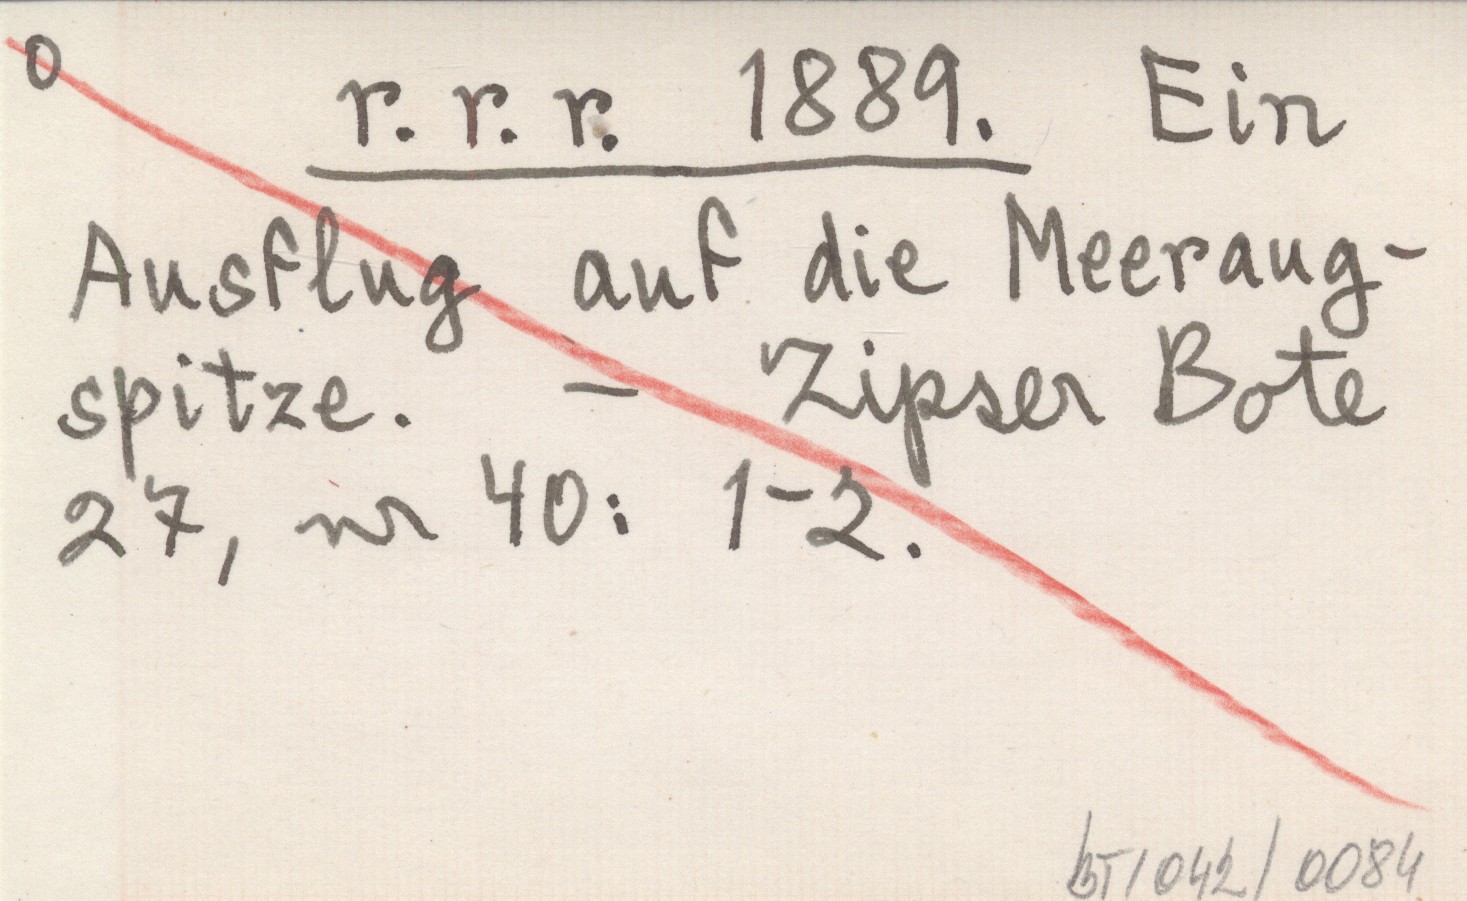 0
r. r. r. 1889. Ein
Ausflug auf die Meeraug-
spitze. — Zipser Bote
27, nr 40: 1-2.
bT/042/0084